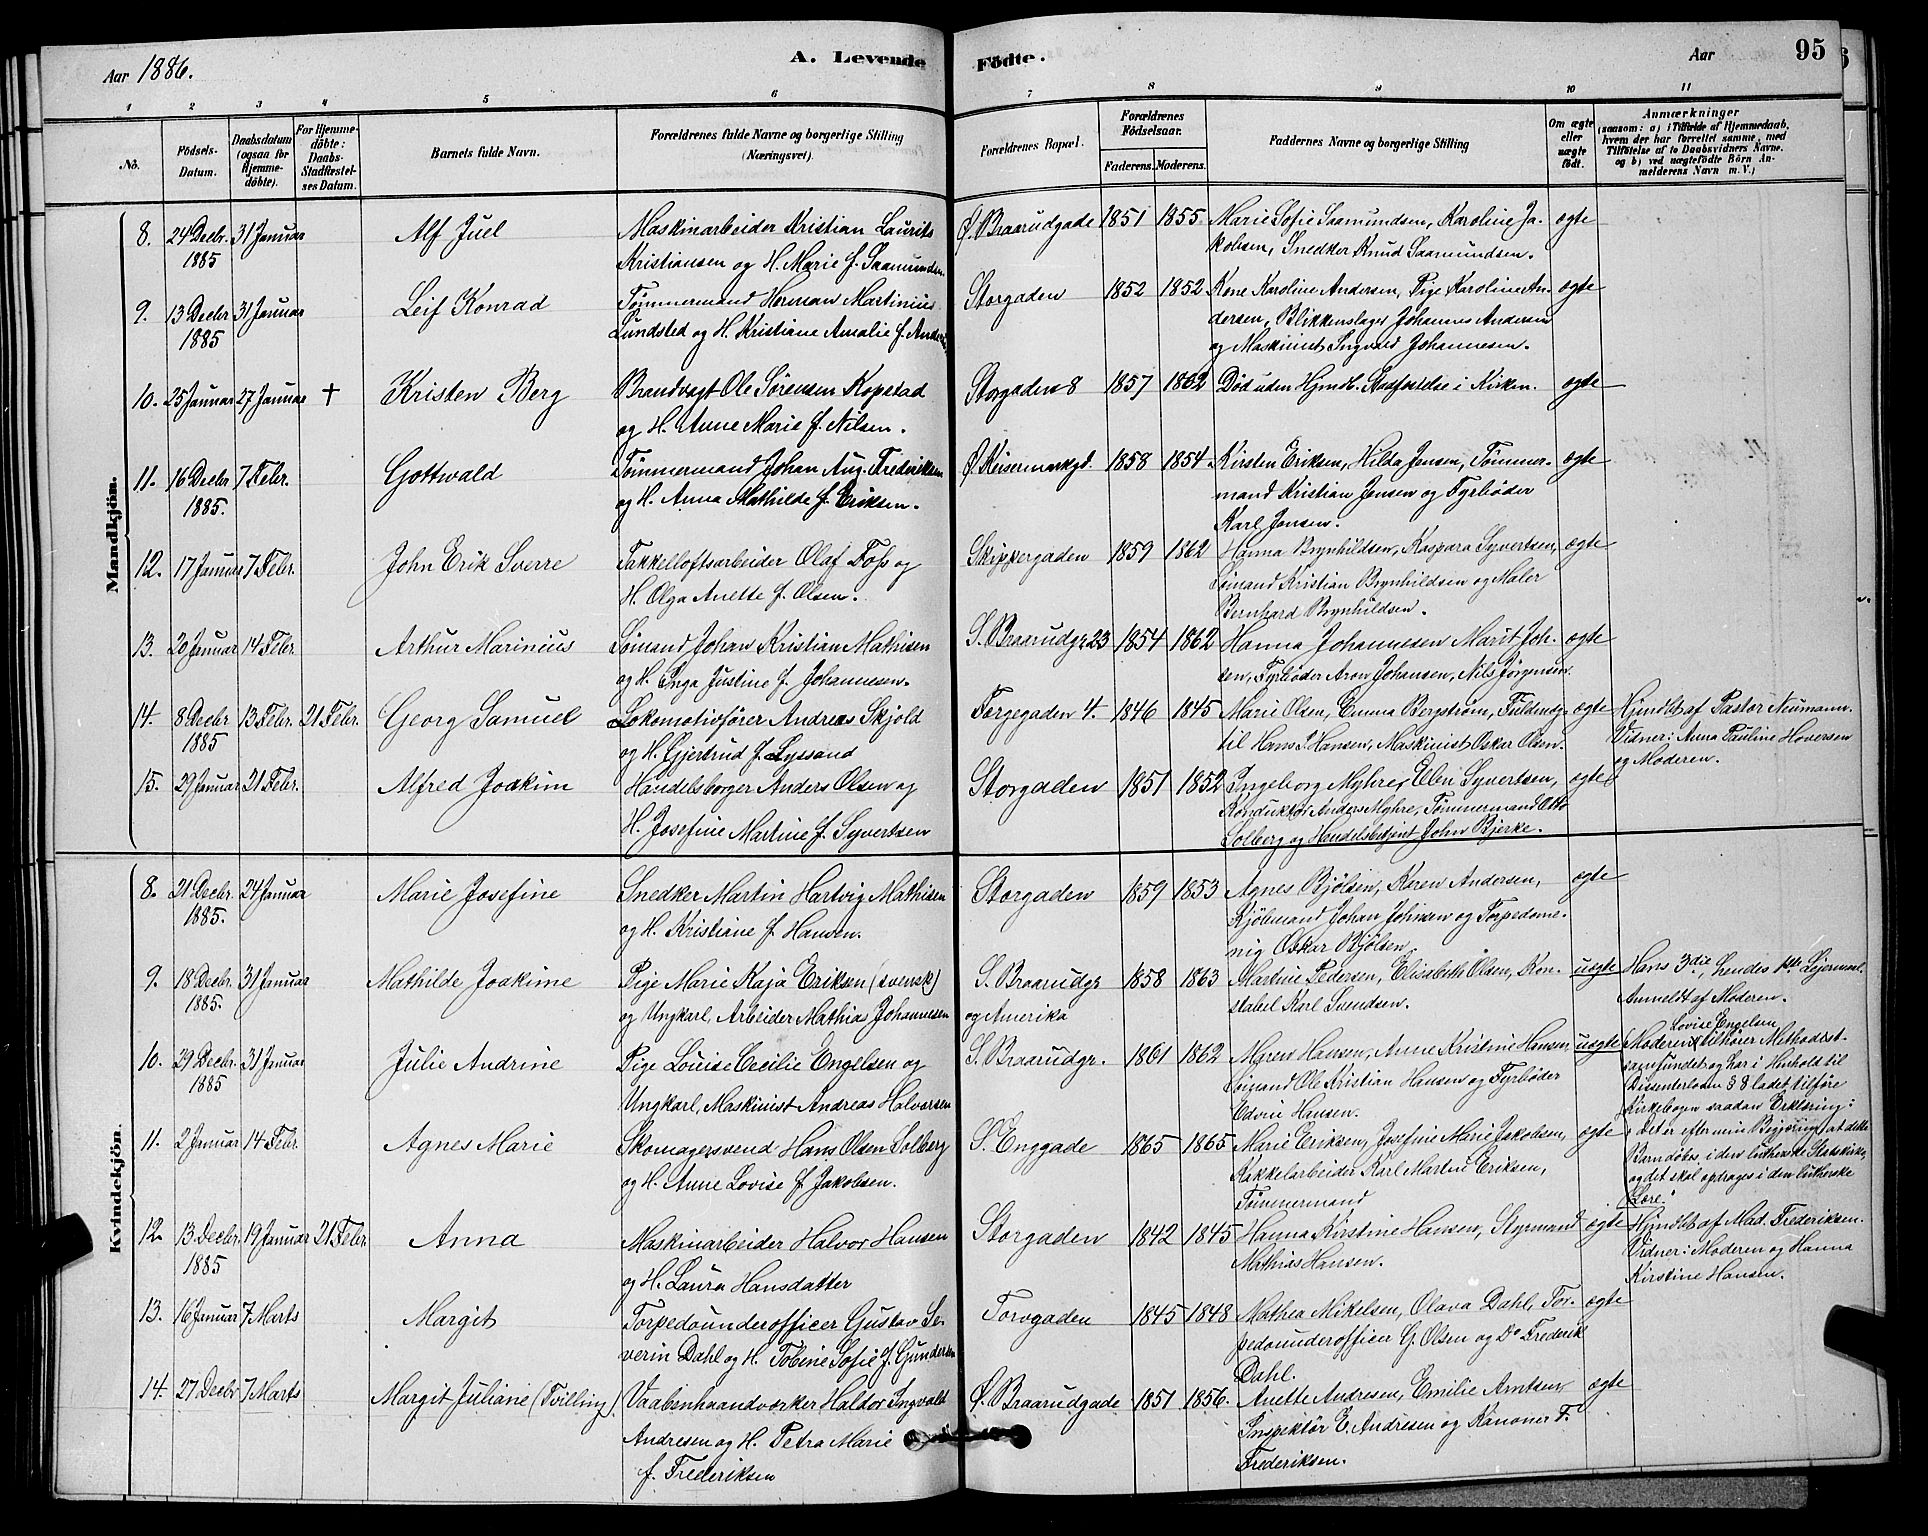 Aar 1886.
A. Levende Födte.
Aar
95
1 2 3 4 5 6 7 8 9 10 11
No.
Födsels-Datum.
Daabsdatum (ogsaa for Hjemme-döbte).
For Hjemme-döbte: Daabs-Stadfæstelses Datum.
Barnets fulde Navn.
Forældrenes fulde Navne og borgerlige Stilling (Næringsvei).
Forældrenes Bopæl.
Forældrenes Födselsaar.
Faderens. Moderens.
Faddernes Navne og borgerlig Stilling
Om ægte eller uægte födt.
Anmærkninger
(saasom: a) i Tilfælde af Hjemmedaab, hvem der har forrettet samme, med Tilföielse af to Daabsvidners Navne, og b) ved uægtefödte Börn Anmelderens Navn m. V.)
Mandkjön.
8. 24 Decbr. 1885 31 Januar Alf Juel
Maskinarbeider Kristian Laurits
Kristiansen og H. Marie f. Saamundsen
Ø. Braarudgade 1851 1855
Marie Sofie Saamundsen, Karoline Ja-
kobsen, Snedker Knud Saamundsen.
ægte
9. 13 Decbr 1885 31 Januar Leif Konrad
Tømmermand Herman Martinius
Lundsted og H. Kristiane Amalie f. Anders.
Storgaden 1852 1852
Kone Karoline Andersen, Pige Karoline An-
dersen, Blikkenslager Johannes Andersen
og Maskinist Ingvald Johannesen.
ægte
10. 25 Januar 27 Januar † Kristen Berg
Brandvagt Ole Sørensen Kopstad
og H. Anne Marie f. Nilsen.
Storgaden 8 1857 1862
Død uden Hjmdb. Stadfæstelse i Kirken.
ægte
11. 16 Decbr 1885. 7 Febr. Gottwald
Tømmermand Johan Aug. Frederiksen
og H. Anna Mathilde f. Eriksen.
Ø. Keisermarkgd. 1858 1854
Kirsten Eriksen, Hilda Jensen, Tømmer-
mand Kristian Jensen og Fyrbøder
Karl Jensen.
ægte
12. 17 Januar 7 Febr. John Erik Sverre
Takkelloftsarbeider Olaf Foss og
H. Olga Anette f. Olsen.
Skippergaden 1859 1862
Hanna Brynhildsen, Kaspara Syvertsen,
Sømand Kristian Brynhildsen og Maler
Bernhard Brynhildsen.
ægte
13. 20 Januar 14 Febr Arthur Marinius
Sømand Johan Kristian Mathisen
og H. Inga Justine f. Johannesen.
S. Braarudgr. 23 1854 1862
Hanna Johannesen Marit Joh-
sen, Fyrbøder Aron Johansen, Nils Jörgensen.
ægte
14. 8 Decbr 1885 13 Febr. 21 Febr. Georg Samuel
Lokomotivfører Andreas Skjold
og H. Gjertrud f. Lyssand
Torgegaden 4. 1846 1845
Marie Olsen, Emma Bergstrøm, Fuldmdg
til Hans P. Hansen, Maskinist Oskar Olsen.
ægte
Hjmdbt af Pastor Neumann.
Vidner: Anna Pauline Hoversen
og Moderen.
15. 29 Januar 21 Febr. Alfred Joakim
Handelsborger Anders Olsen og
H. Josefine Martine f. Syvertsen
Storgaden 1851 1852
Ingeborg Myhre, Ellen Syvertsen,
Konduktør Anders Myhre, Tømmermand Otto
Solberg og Handelsbetjent John Bjerke.
ægte
Kvindekjön.
8. 21 Decbr. 1885. 24 Januar Marie Josefine
Snedker Martin Hartvig Mathisen
og H. Kristiane f. Hansen.
Storgaden 1859 1853
Agnes Bjølsen, Karen Andersen,
Kjøbmand Johan Johnsen og Torpedome-
nig Oskar Bjølsen
ægte
9. 18 Decbr. 1885. 31 Januar Mathilde Joakime
Pige Marie Kaja Eriksen (svensk)
og Ungkarl, Arbeider Mathias Johannesen
S. Braarudgr
og Amerika
1858 1863
Martine Pedersen, Elisabeth Olsen, Kon-
stabel Karl Svendsen.
uægte
Hans 3die, hendes 1ste Leiermaal.
Anmeldt af Moderen.
10. 29 Decbr. 1885 31 Januar Julie Andrine
Pige Louise Cecilie Engelsen og
Ungkarl, Maskinist Andreas Halvorsen
S. Braarudgr. 1861 1862
Maren Hansen, Anne Kristine Hansen,
Sømand Ole Kristian Hansen og Fyrbøder
Edvin Hansen.
uægte
Lovise Engelsen
Moderen tilhører Methodist-
samfundet og har i Henhold til
Dissenterloven § 8 ladet tilføre
Kirkebogen saadan Erklæring:
"det er efter min Begjæring at dette
Barn døbes i den lutherske Statskirke,
og det skal opdrages i den lutherske
Lære."
11. 2 Januar 14 Febr. Agnes Marie
Skomagersvend Hans Olsen Solberg
og H. Anne Lovise f. Jakobsen.
S. Enggade 1865 1865
Marie Eriksen, Josefine Marie Jakobsen,
Kakkelarbeider Karl Martin Eriksen,
Tømmermand
ægte
12. 13 Decbr. 1885 19 Januar 21 Febr. Anna
Maskinarbeider Halvor Hansen
og H. Laura Hansdatter
Storgaden 1842 1845
Hanna Kirstine Hansen, Styrmand
Mathias Hansen.
ægte
Hjmdbt af Mad. Frederiksen.
Vidner: Moderen og Hanna
Kirstine Hansen.
13. 16 Januar 7 Marts Margit
Torpedounderofficer Gustav Se-
verin Dahl og H. Tobine Sofie f. Gundersen
Torvgaden 1845 1848
Mathea Mikelsen, Olava Dahl, Tor-
pedounderofficer G. Olsen og Do Frederik
Dahl.
ægte
14. 27 Decbr 7 Marts Margit Juliane (Tvilling).
Vaabenhaandværker Haldor Ingvald
Andresen og H. Petra Marie
f. Frederiksen
Ø. Braarudgade 1851 1856.
Anette Andresen, Emilie Arntsen,
Inspektör E. Andresen og Kanoner F.
Frederiksen.
ægte